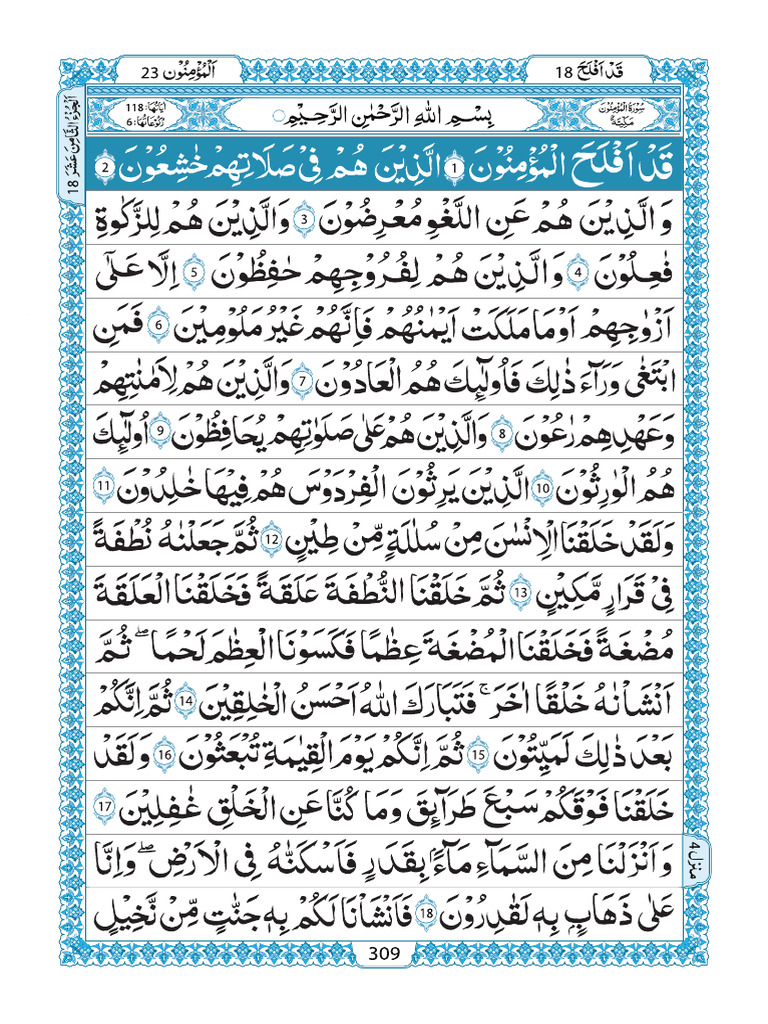 قَدْ اَفْلَحَ 18
اَلْمُؤْمِنُوْن 23
اَلْجُزْءُ الثَّامِنَ عَشَرَ 18
سُوْرَةُ الْمُؤْمِنُوْنَ مَكِّيَّةٌ
بِسْمِ اللهِ الرَّحْمٰنِ الرَّحِيْمِ
اٰيَاتُهَا: 118
رُكُوْعَاتُهَا: 6
قَدْ اَفْلَحَ الْمُؤْمِنُوْنَ 1 الَّذِيْنَ هُمْ فِيْ صَلَاتِهِمْ خٰشِعُوْنَ 2
وَالَّذِيْنَ هُمْ عَنِ اللَّغْوِ مُعْرِضُوْنَ 3 وَالَّذِيْنَ هُمْ لِلزَّكٰوةِ
فٰعِلُوْنَ 4 وَالَّذِيْنَ هُمْ لِفُرُوْجِهِمْ حٰفِظُوْنَ 5 اِلَّا عَلٰٓى
اَزْوٰجِهِمْ اَوْمَا مَلَكَتْ اَيْمٰنُهُمْ فَاِنَّهُمْ غَيْرُ مَلُوْمِيْنَ 6 فَمَنِ
ابْتَغٰى وَرَآءَ ذٰلِكَ فَاُولٰٓئِكَ هُمُ الْعَادُوْنَ 7 وَالَّذِيْنَ هُمْ لِاَمٰنٰتِهِمْ
وَعَهْدِهِمْ رٰعُوْنَ 8 وَالَّذِيْنَ هُمْ عَلٰى صَلَوٰتِهِمْ يُحَافِظُوْنَ 9 اُولٰٓئِكَ
هُمُ الْوٰرِثُوْنَ 10 الَّذِيْنَ يَرِثُوْنَ الْفِرْدَوْسَ هُمْ فِيْهَا خٰلِدُوْنَ 11
وَلَقَدْ خَلَقْنَا الْاِنْسٰنَ مِنْ سُلٰلَةٍ مِّنْ طِيْنٍ 12 ثُمَّ جَعَلْنٰهُ نُطْفَةً
فِيْ قَرَارٍ مَّكِيْنٍ 13 ثُمَّ خَلَقْنَا النُّطْفَةَ عَلَقَةً فَخَلَقْنَا الْعَلَقَةَ
مُضْغَةً فَخَلَقْنَا الْمُضْغَةَ عِظٰمًا فَكَسَوْنَا الْعِظٰمَ لَحْمًا ۖ ثُمَّ
اَنْشَاْنٰهُ خَلْقًا اٰخَرَ ۚ فَتَبَارَكَ اللهُ اَحْسَنُ الْخٰلِقِيْنَ 14 ثُمَّ اِنَّكُمْ
بَعْدَ ذٰلِكَ لَمَيِّتُوْنَ 15 ثُمَّ اِنَّكُمْ يَوْمَ الْقِيٰمَةِ تُبْعَثُوْنَ 16 وَلَقَدْ
خَلَقْنَا فَوْقَكُمْ سَبْعَ طَرَآئِقَ وَمَا كُنَّا عَنِ الْخَلْقِ غٰفِلِيْنَ 17
وَاَنْزَلْنَا مِنَ السَّمَآءِ مَآءً بِقَدَرٍ فَاَسْكَنّٰهُ فِى الْاَرْضِ ۖ وَاِنَّا
عَلٰى ذَهَابٍ بِهٖ لَقٰدِرُوْنَ 18 فَاَنْشَاْنَا لَكُمْ بِهٖ جَنّٰتٍ مِّنْ نَّخِيْلٍ
منزل 4
309